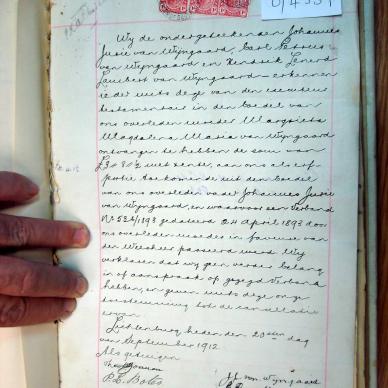 6/4551
Wy de ondergeteekenden Johannes
Jurie van Wyngaard, Carl Petrus
van Wyngaard en Hendrik Lenerd
Lambert van Wyngaard - erkennen
ieder mits deze van den executeur
testamentair in den boedel van
ons overleden moeder Margrieta
Magdalena Maria van Wyngaard
ontvangen te hebben de som van
met rente, aan ons als erf
portie toekomende uit den boedel
van ons overleden vader Johannes Jurie
van Wyngaard, en waarvoor een Verband
No 524/1893 gedateerd 24 April 1893 door
ons overleden moeder in faveure van
den Weesheer passeerd werd Wy
verklaren dat wy geen verder belang
in of aanspraak op gezegd Verband
hebben, en geven mits deze onze
toestemming tot de cancellatie
ervan
Lichtenburg heden den 20sten dag
van September 1912.
Als getuigen
P. L. Botes
J J van Wyngaard